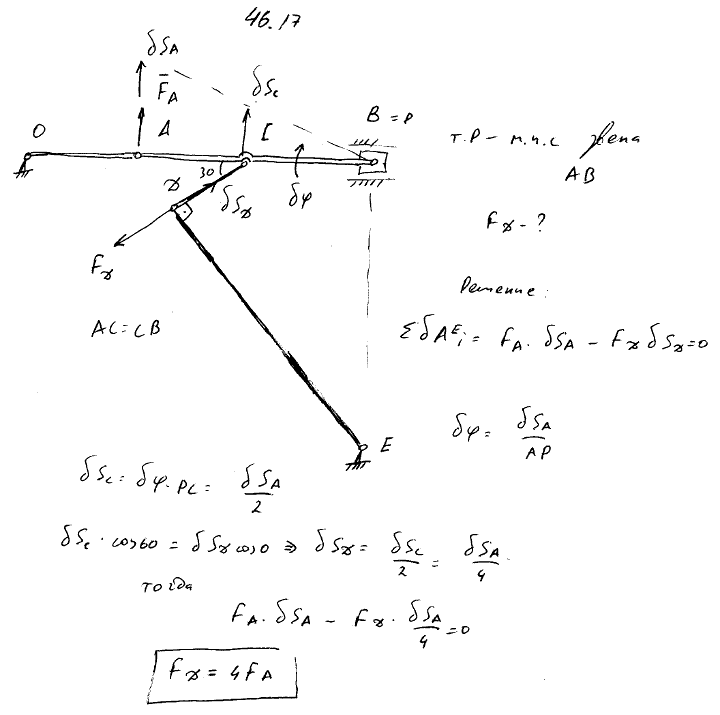 46.17
δS_A
F̄_A
δS_c
B = P
O
A
C
т.P – м.ц.с звена
AB
30
D
δS_D
δφ
F_D - ?
F_D
Решение:
AC = CB
Σ δA^E_i = F_A · δS_A − F_D δS_D = 0
δφ = δS_A / AP
E
δS_c = δφ · PC = δS_A / 2
δS_c · cos60 = δS_D cos0 ⇒ δS_D = δS_c / 2 = δS_A / 4
тогда
F_A · δS_A − F_D · δS_A / 4 = 0
F_D = 4F_A